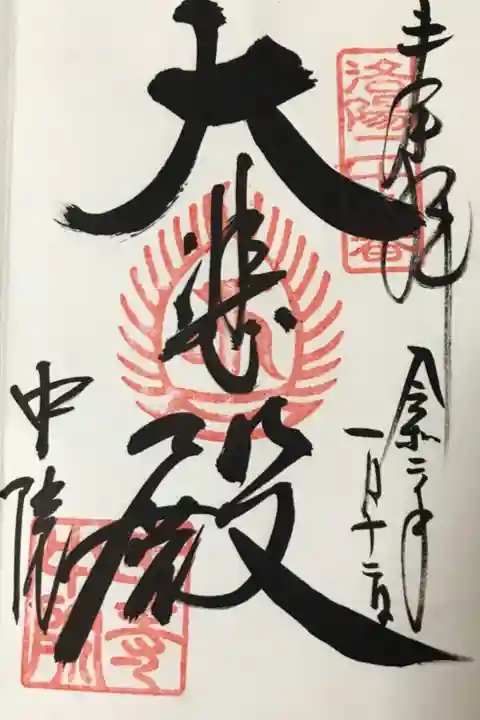 奉拝
洛陽二十八番
令和二年
一月十二日
大悲殿
中院